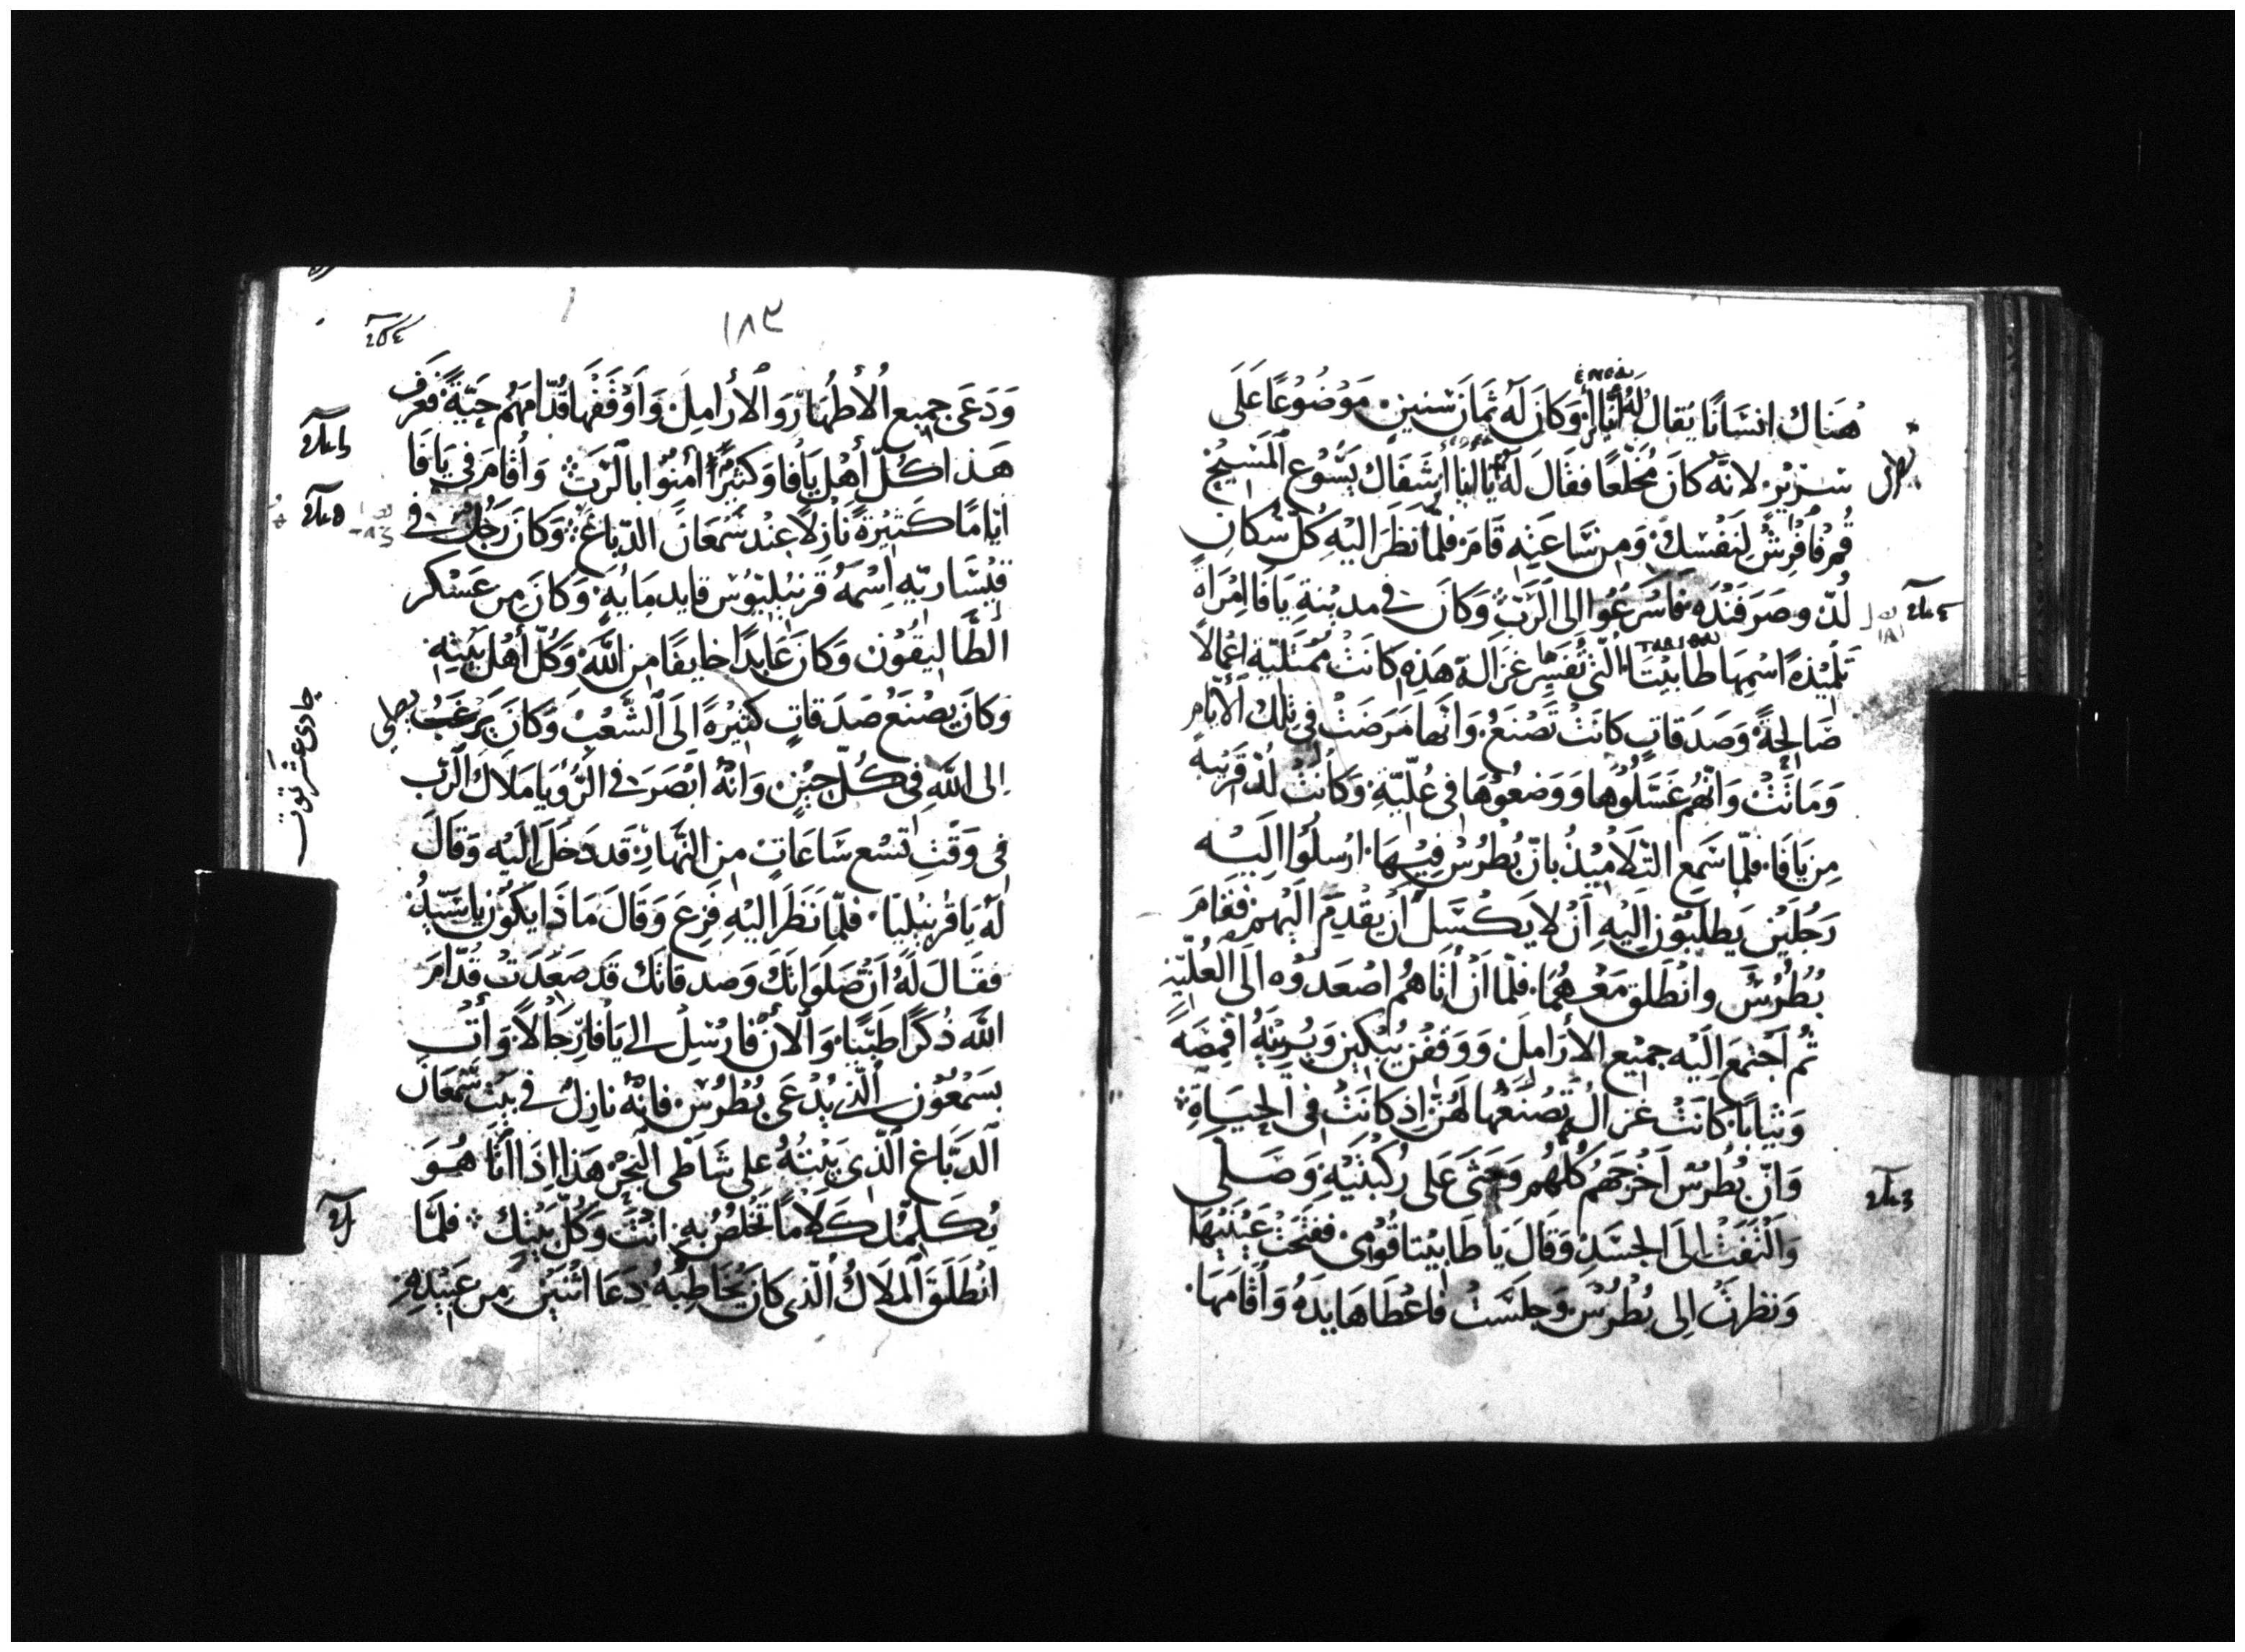 هُنَاك انسَانًا يُقال لَهُ أنَيَال وَكانَ لَه ثَمَانَ سْنِينٍ مَوْضُوْعًا عَلَى
سَرْيْرٍ لانَّه كانَ مُخَلَّعًا فقَالَ لَهُ يَا أنيا أشفَاك يَسُّوع المَسِيحْ
قُم فافْرِشْ لِنَفْسِكْ وَمِن سَّاعَتِهِ قَامَ فلمّا نَظَرَ اليْهِ كُلّ سُكانِ
لُدّ وصَرَفَنْدَه فاسْرَعُوا الى الرَبّ وَكانَ فى مدينةِ يَافا امْرَاةً
تَلْمِيْذةً اسْمهَا طابيْتا الّتى تُفَسِّر غَزَالة هَذِهِ كانَتْ مُمْتَليّة اعْمالاً
صَالحةً وَصَدَقاتٍ كانَتْ تَصْنَعُ وَانّها مَرَضَتْ فى تِلْك الأيّام
وَمَاتَتْ وَانّهُم غَسَّلُوْها وَوَضعُوْهَا فى عُلّيّةٍ وَكانَتْ لُدّ قَرْيبَه
مِن يَافَا فلمّا سَمع التّلاميْذُ بانّ بُطرُسْ فِيْهَا ارْسلُوْا اليْه
رَجُلَيْن يَطلبُوْن اليْهِ اَنْ لا يَكْسَل اَنْ يقْدم اليْهم فقَامَ
بُطْرُسْ وانْطَلق مَعْهُمَا فلمّا اَنْ أتاهُم اصْعَدوْه الَى العُلّيّة
ثُم اَجْتمعَ اليْه جميْع الأرَامِلَ وَوَقفْن يَبْكين وَيُرِيْنَهُ اقْمصَةً
وَثيَابًا كانَتْ غزال تَصْنَعُها لهُنّ اِذ كانَتْ فى الحيَاةِ
وَانّ بُطرُسْ اَخْرَجَهُمُ كُلّهُم وَجَثَى عَلى رُكْبَتَيْهِ وَصَلّى
وَالْتَفَتْ الَى الجسَدِ وَقالَ يَا طَابيْتا قُوْمى ففَتَحَتْ عَيْنَيْهَا
وَنظرتْ الى بُطْرُسْ وَجلسَتْ فاعْطاها يَدَهُ وَأقامَهَا
١٨٣
وَدَعَى جميع الأطهَار وَالأرامِل وَأوْقَفها قُدّامَهُم حَيّةً فعَرف
هَذا كُلّ أهْل يَافا وَكثيرًا أمنوا بالرَبّ وَأقامَ فى يَافَا
ايّامًا كَثيرةً نازلاً عِنْد سَمْعَان الدّبّاغ وَكانَ رَجُل فى
قيْسَاريّه اسْمَهُ قرنيْليُوسْ قايد مَايةٍ وَكانَ مِن عَسْكر
الطّاليقُون وَكانَ عَابدًا خايفًا من اللّه وَكُلّ أهْل بَيْتِهِ
وَكانَ يصْنعُ صَدَقاتٍ كثيْرةً الَى الشّعْب وَكانَ يَرْغَبُ
الى اللّهِ فى كُلّ حيْنٍ وَانّه ابْصَرَ فى الرّؤيَا مَلاك الرّبّ
فى وَقت تسْع سَاعَاتٍ مِن النّهار قَد دَخَل اليْه وَقال
لهُ يَا قرنيْليَا فلمّا نَظرَ اليْهِ فَزِعَ وَقالَ مَاذا يكوْن يا سَيّدُ
فقال لَهُ ان صَلوَاتَكَ وَصَدقاتك قد صَعَدَتْ قُدّامَ
اللّه ذكرًا طيّبًا وَالأنْ فارْسِل الى يَافا رجَالاً وَأت
بسَمْعُون الّذى يُدْعَى بُطرُسْ فانّه نازِلُ فى بيْت سَمْعَان
الدّبّاغ الّذى بَيْتُهُ على شَاطى البَحْر هَذا اذَا اَتَا هُوَ
يُكلّمك كلامًا تَخلصُ بهِ انْتَ وَكُلّ بَيْتِك فلمّا
انْطَلقَ المَلاك الّذى كان يُخاطبُهُ دَعَا اثْنيْن مِن عَبيْدِهِ
حادى عشر توت